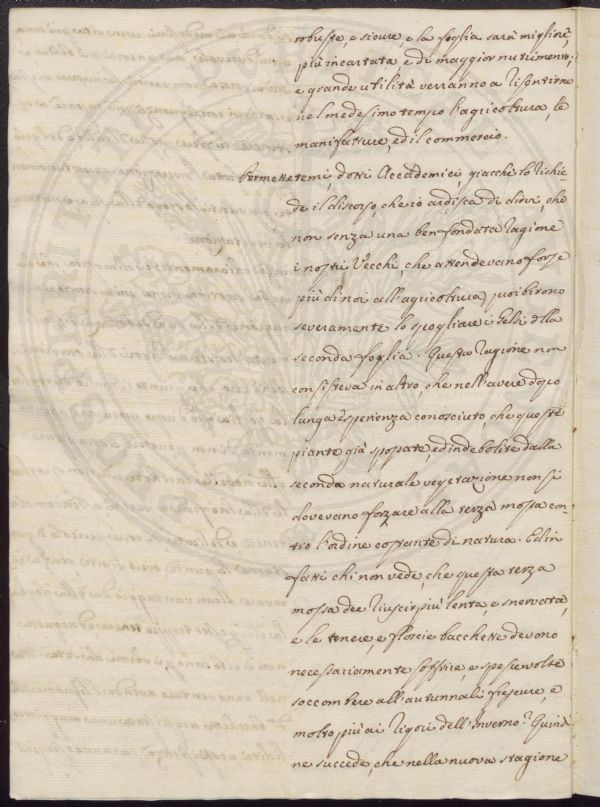 robuste, e sicure, e la foglia sarà migliore,
più incartata, e di maggior nutrimento,
e grande utilità verranno a risentirne
nel medesimo tempo l'agricoltura, le
manifatture, ed il commercio.
Permettetemi, dotti Accademici, giacchè lo richie-
de il discorso, che io ardisca di dirvi, che
non senza una ben fondata ragione
i nostri Vecchi, che attendevano forse
più di noi all'agricoltura, proibirono
severamente lo spogliare i Gelsi della
seconda foglia. Questa ragione non
consisteva in altro, che nell'avere dopo
lunga esperienza conosciuto, che queste
piante già spopate, ed indebolite dalla
seconda naturale vegetazione non si
dovevano forzare alla terza mossa con-
tro l'ordine costante di natura. Ed in
fatti chi non vede che questa terza
mossa dee riuscir più lenta, e snervata,
e le tenere, e floscie bacchette devono
necessariamente soffrire, e spesse volte
soccombere all'autunnali frescure, e
molto più ai rigori dell'Inverno? Quind
ne succede, che nella nuova stagione